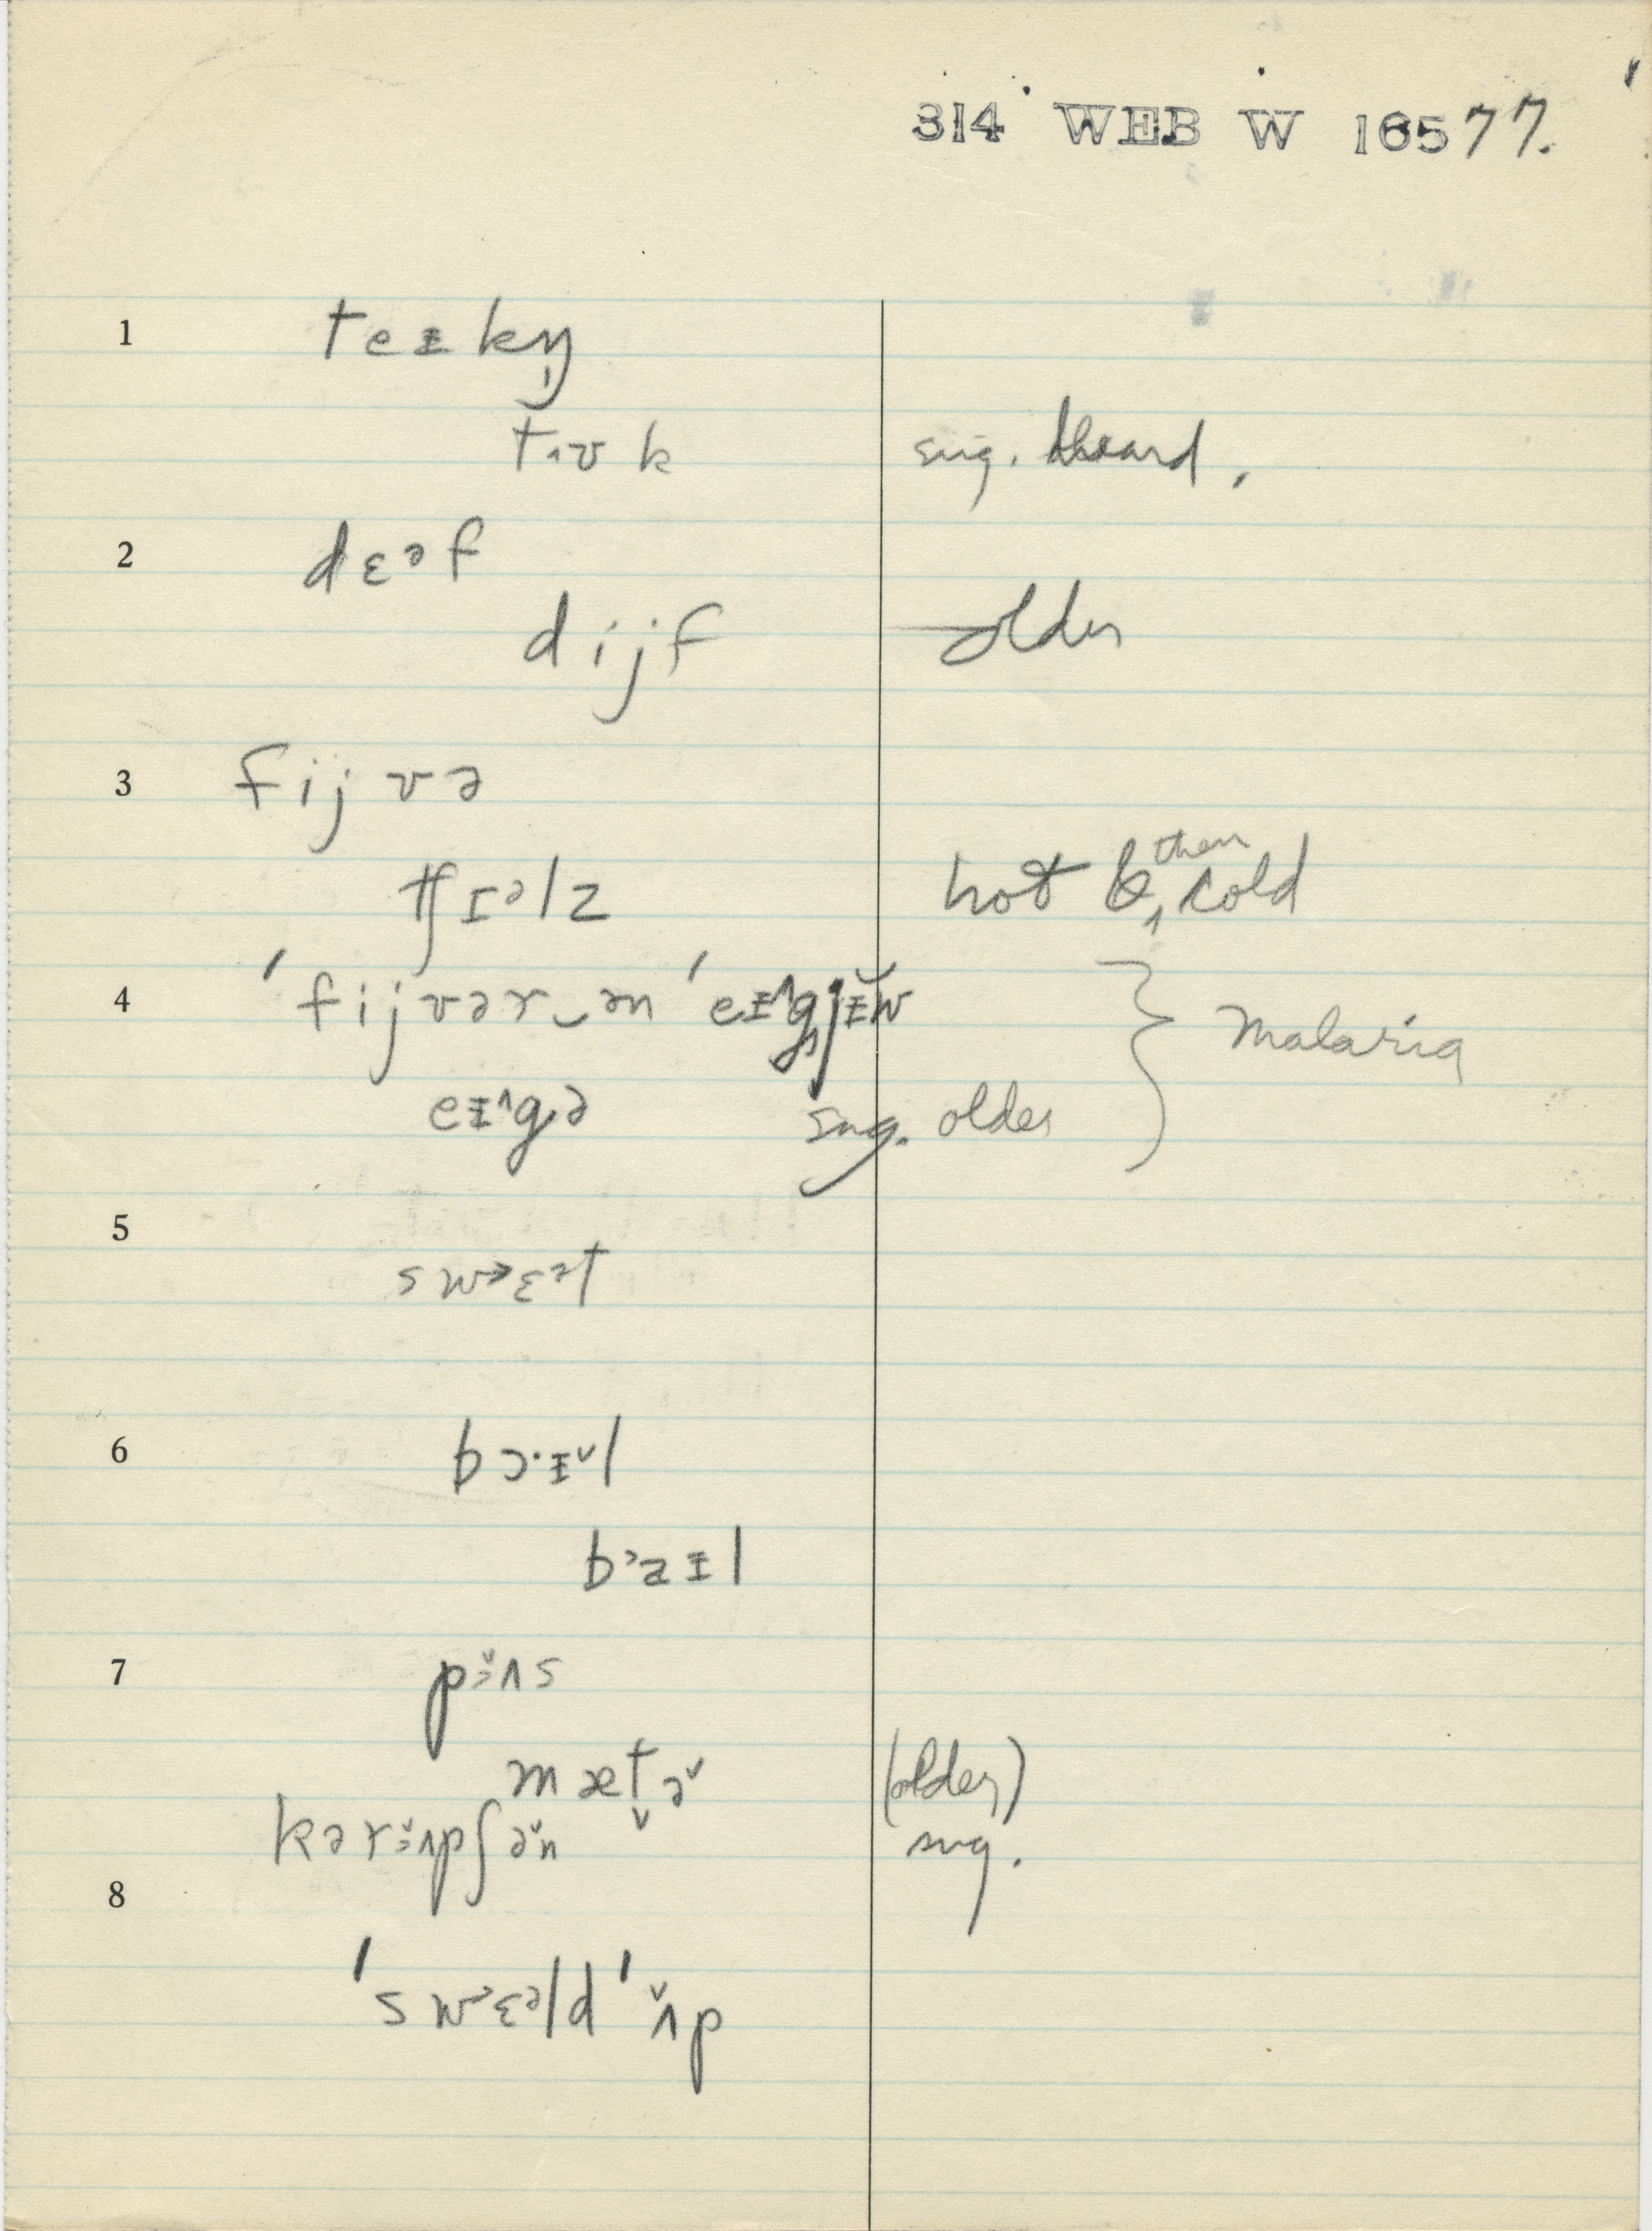 314 WEB W 16577.
1 teᵻkŋ̩
tɪʊk sug. heard.
2 dɛᵊf
dijf older
3 fijvə
tʃɪᵊlz hot & then cold
4 ˈfijvər‿ən ˈeᵻ^gjᵻ̆w Malaria
eᵻ^gə sug. older
5
sw>ɛᵊt
6 bɔ·ᵻˇl
bᵓaᵻl
7 pɜˇʌs
mætˬəˇ (older)
kərɜˇʌpʃəˇn sug.
8
ˈsw>ɛᵊld ˈʌˇp